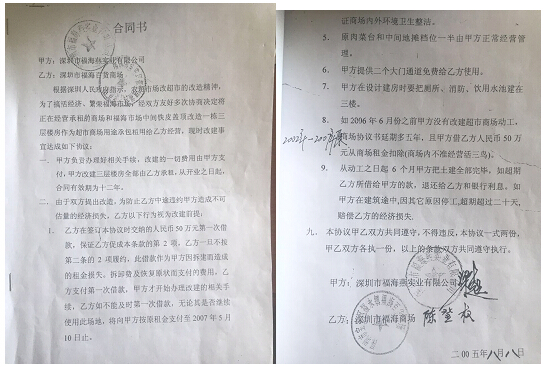 合同书
甲方：深圳市福海燕实业有限公司
乙方：深圳市福海百货商场
根据深圳人民政府指示，农贸市场改超市的改造精神，
为了搞活经济、繁荣福海市场，经双方友好多次协商决定将
正在经营承租的商场和福海市场中间铁皮盖顶改造一栋三
层楼房作为超市商场用途承包租用给乙方经营，现时改建事
宜达成如下协议：
一、 甲方负责办理好相关手续，改建的一切费用由甲方支
付，甲方改建三层楼房全部由乙方承租，从开业之日起，
合同有效期为十二年。
二、 由于双方提出改造，为防止乙方中途违约甲方造成不可
估量的经济损失，乙方以下行为视为改建前提：
1、 乙方在签订本协议时交纳的人民币 50 万元第一次借
款，保证乙方促成本条款的第 2 项，乙方一旦不按
第二条的 2 项履约，此借款作为甲方因拆建而造成
的租金损失、拆卸费及恢复原状而支付的费用。乙
方支付第一次借款，甲方才开始办理改建的相关手
续，乙方如不能及时第一次借款，无论其是否继续
使用此场地，将向甲方按原租金支付至 2007 年 5
月 10 日止。
证商场内外环境卫生整洁。
5、 原肉菜台和中间地摊档位一半由甲方正常经营
管理。
6、 甲方提供二个大门通道免费给乙方使用。
7、 甲方在设计建房时要把厕所、消防、饮用水池建在
三楼。
8、 如 2096 年 6 月份之前甲方没有改建超市商场动工，
商场协议书延期多五年，且甲方借乙方人民币 50 万
元从商场租金扣除(商场内不准经营活三鸟)。
9、 从动工之日起 6 个月甲方把土建全部完毕。如超期
乙方所借给甲方的款，退还给乙方和银行利息。如
甲方在建筑途中,因其它原因停工,超期超过二十天,
赔偿乙方的经济损失.
九、 本协议甲乙双方共同遵守,不得违反,本协议一式两份,
甲乙双方各执一份，以上的条款双方共同遵守执行。
甲方：深圳市福海燕实业有限公司
乙方：深圳市福海商场 陈
二00五年八月八日